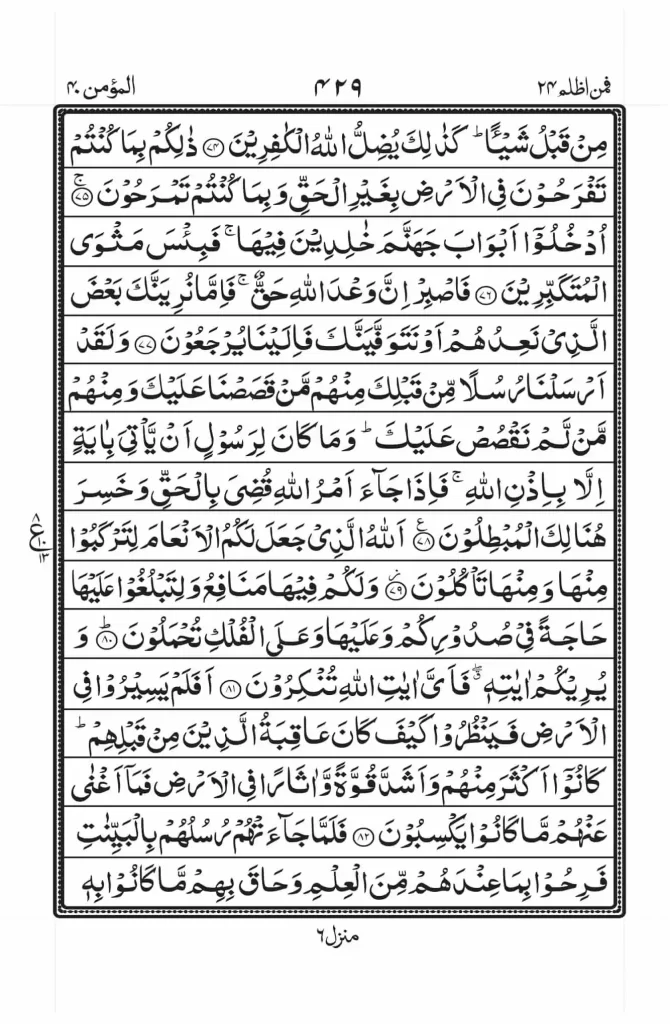 فمن اظلم ٢٤
٤٢٩
المؤمن ٤٠
مِنْ قَبْلُ شَيْـًٔا ؕ كَذٰلِكَ يُضِلُّ اللّٰهُ الْكٰفِرِيْنَ ﴿٧٤﴾ ذٰلِكُمْ بِمَا كُنْتُمْ
تَفْرَحُوْنَ فِى الْاَرْضِ بِغَيْرِ الْحَقِّ وَبِمَا كُنْتُمْ تَمْرَحُوْنَ ﴿٧٥﴾ ۚ
اُدْخُلُوْٓا اَبْوَابَ جَهَنَّمَ خٰلِدِيْنَ فِيْهَا ۚ فَبِئْسَ مَثْوَى
الْمُتَكَبِّرِيْنَ ﴿٧٦﴾ فَاصْبِرْ اِنَّ وَعْدَ اللّٰهِ حَقٌّ ۚ فَاِمَّا نُرِيَنَّكَ بَعْضَ
الَّذِىْ نَعِدُهُمْ اَوْ نَتَوَفَّيَنَّكَ فَاِلَيْنَا يُرْجَعُوْنَ ﴿٧٧﴾ وَلَقَدْ
اَرْسَلْنَا رُسُلًا مِّنْ قَبْلِكَ مِنْهُمْ مَّنْ قَصَصْنَا عَلَيْكَ وَمِنْهُمْ
مَّنْ لَّمْ نَقْصُصْ عَلَيْكَ ؕ وَمَا كَانَ لِرَسُوْلٍ اَنْ يَّاْتِىَ بِاٰيَةٍ
اِلَّا بِاِذْنِ اللّٰهِ ۚ فَاِذَا جَآءَ اَمْرُ اللّٰهِ قُضِىَ بِالْحَقِّ وَخَسِرَ
هُنَالِكَ الْمُبْطِلُوْنَ ﴿٧٨﴾ ع اَللّٰهُ الَّذِىْ جَعَلَ لَكُمُ الْاَنْعَامَ لِتَرْكَبُوْا
٨
ع
١٠
١٣
مِنْهَا وَمِنْهَا تَاْكُلُوْنَ ﴿٧٩﴾ ز وَلَكُمْ فِيْهَا مَنَافِعُ وَلِتَبْلُغُوْا عَلَيْهَا
حَاجَةً فِىْ صُدُوْرِكُمْ وَعَلَيْهَا وَعَلَى الْفُلْكِ تُحْمَلُوْنَ ﴿٨٠﴾ ؕ وَ
يُرِيْكُمْ اٰيٰتِهٖ ۖ فَاَىَّ اٰيٰتِ اللّٰهِ تُنْكِرُوْنَ ﴿٨١﴾ اَفَلَمْ يَسِيْرُوْا فِى
الْاَرْضِ فَيَنْظُرُوْا كَيْفَ كَانَ عَاقِبَةُ الَّذِيْنَ مِنْ قَبْلِهِمْ ؕ
كَانُوْٓا اَكْثَرَ مِنْهُمْ وَاَشَدَّ قُوَّةً وَّاٰثَارًا فِى الْاَرْضِ فَمَآ اَغْنٰى
عَنْهُمْ مَّا كَانُوْا يَكْسِبُوْنَ ﴿٨٢﴾ فَلَمَّا جَآءَتْهُمْ رُسُلُهُمْ بِالْبَيِّنٰتِ
فَرِحُوْا بِمَا عِنْدَهُمْ مِّنَ الْعِلْمِ وَحَاقَ بِهِمْ مَّا كَانُوْا بِهٖ
منزل ٦